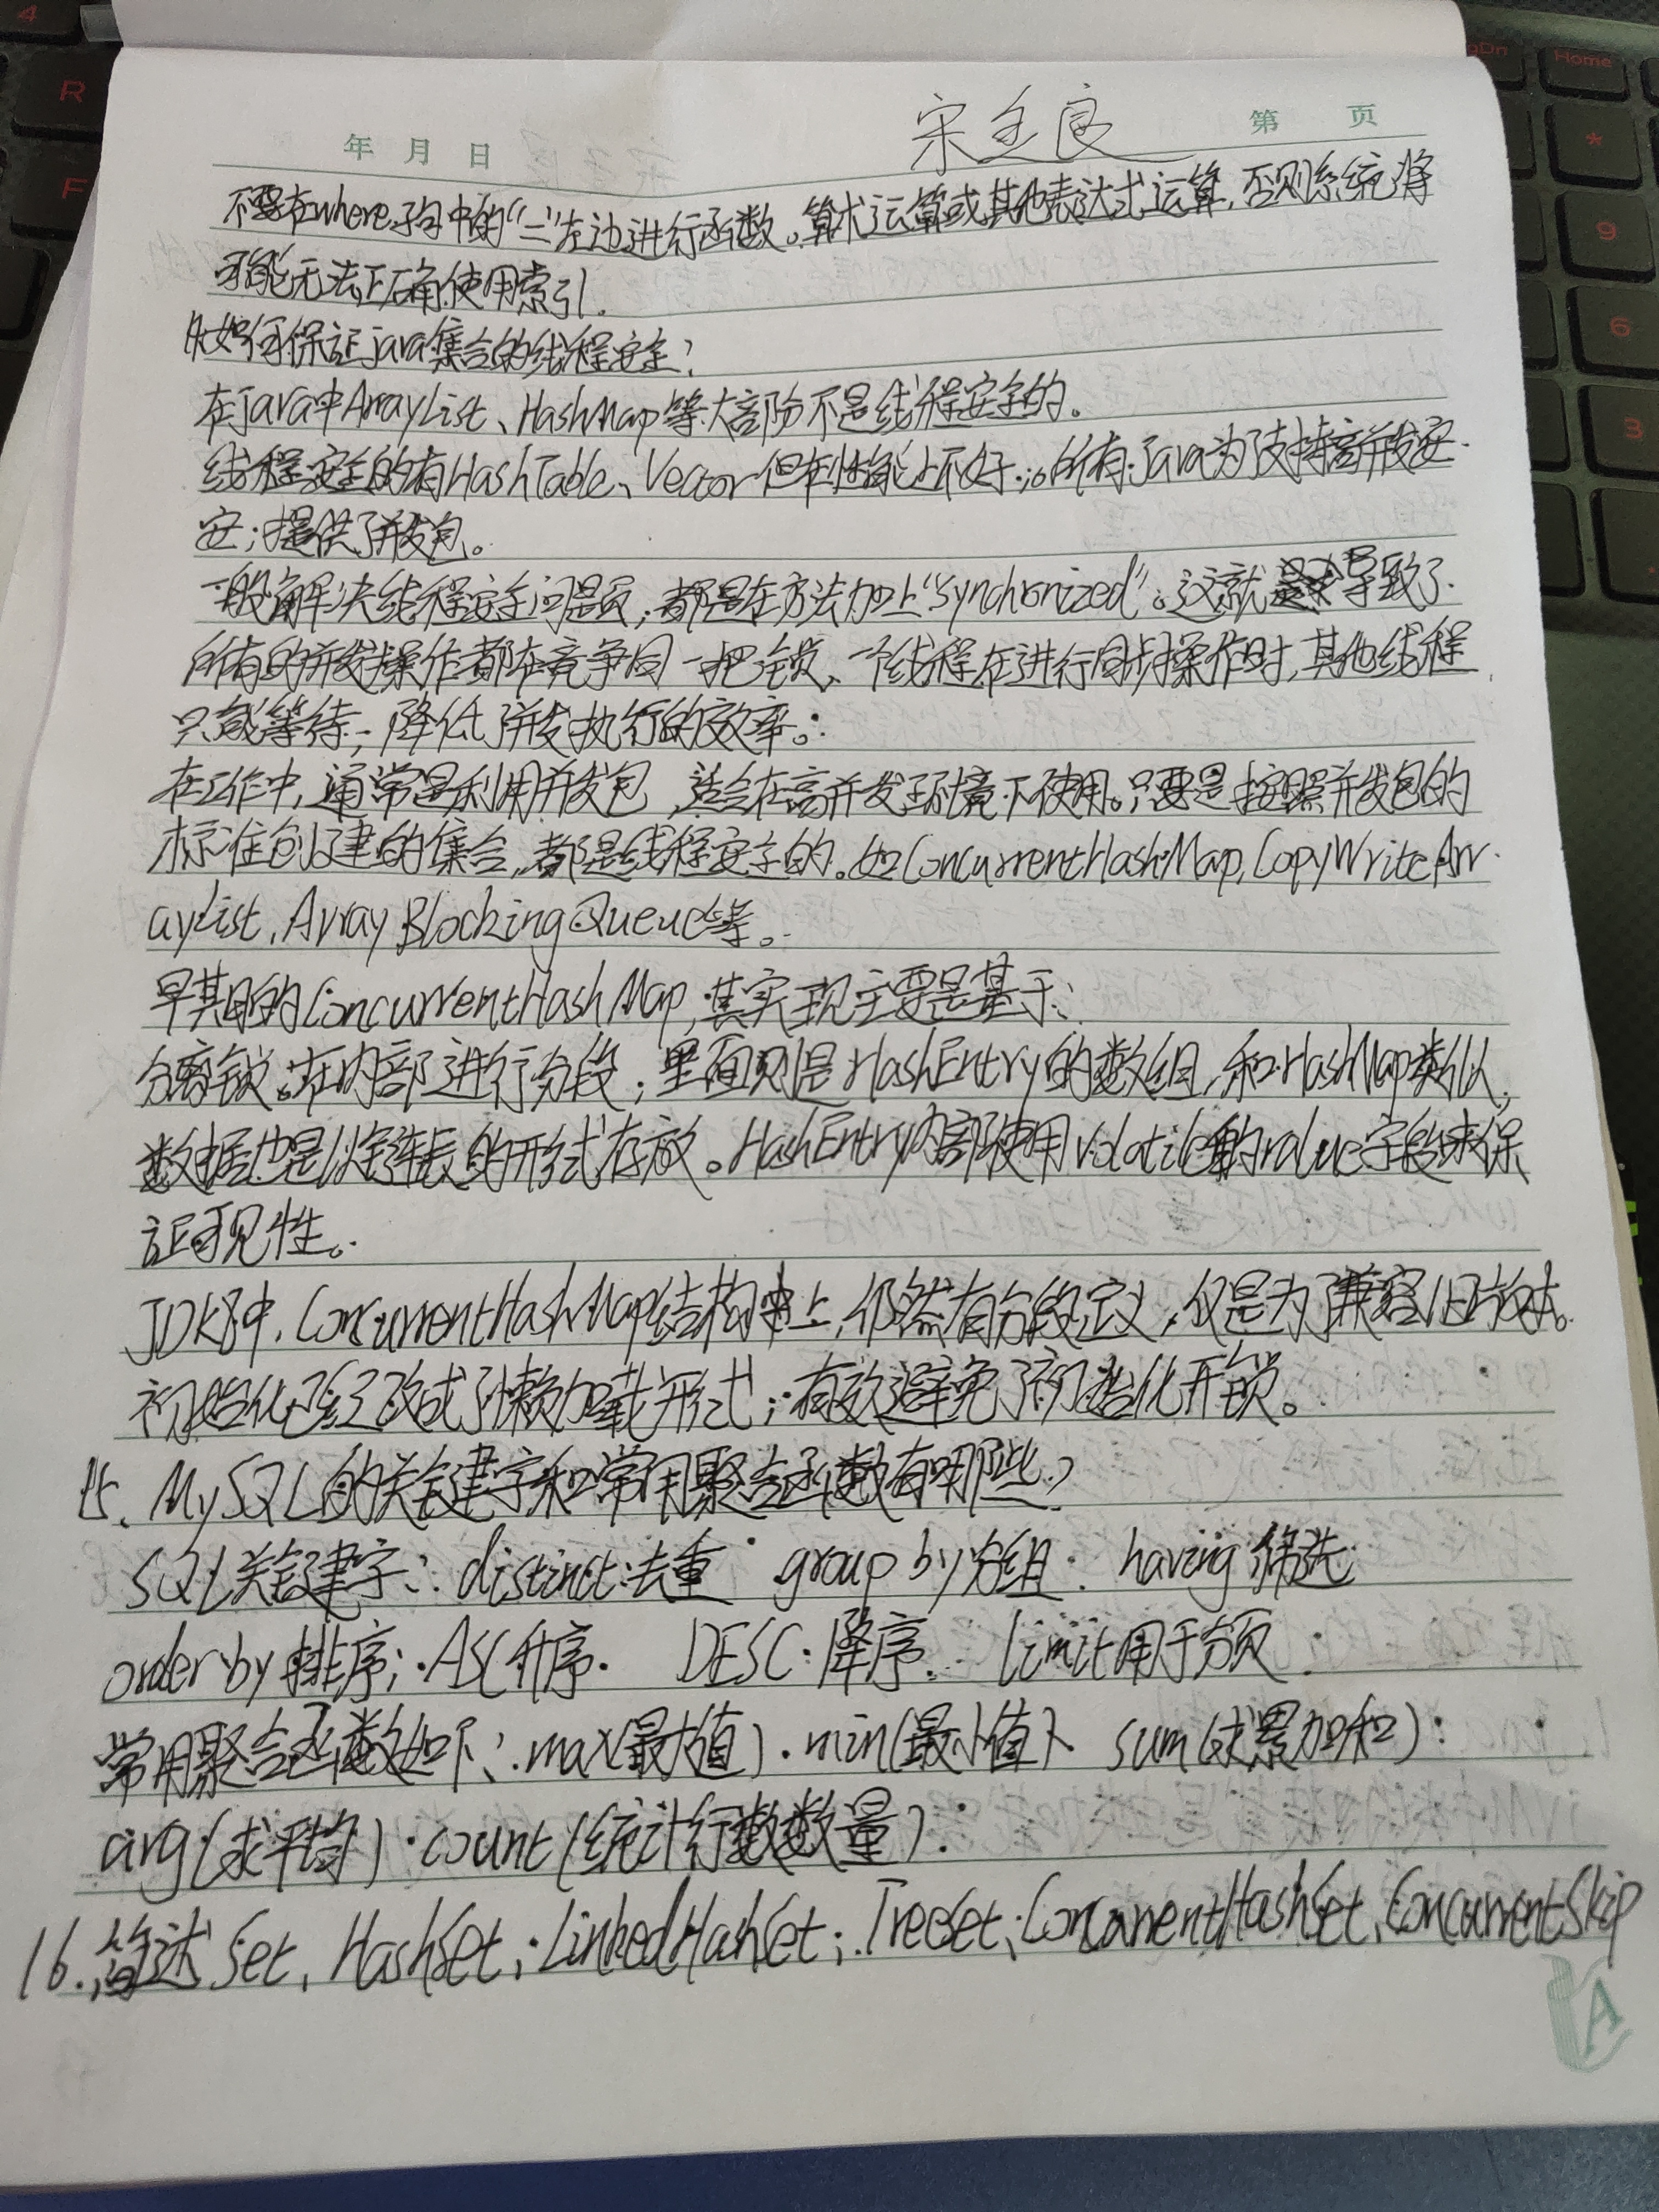 年 月 日 宋全良 第 页
不要在where子句中的“=”左边进行函数、算术运算或其他表达式运算,否则系统将
可能无法正确使用索引.
如何保证java集合的线程安全?
在java中ArrayList、HashMap等大部分不是线程安全的。
线程安全的有HashTable、Vector但在性能上不好;。所有java为了支持高并发安
安;提供了并发包。
一般解决线程安全问题,都是在方法加上“synchronized”。这就导致了
所有的并发操作都在竞争同一把锁、一个线程在进行同步操作时,其他线程
只能等待,降低了并发执行的效率。
在工作中,通常是利用并发包,适合在高并发环境下使用。只要是按照并发包的
标准创建的集合,都是线程安全的。如ConcurrentHashMap,CopyWriteArr
aylist,ArrayBlockingQueue等。
早期的ConcurrentHashMap,其实现主要是基于:
分离锁。在内部进行分段;里面则是HashEntry的数组,和HashMap类似,
数据也是以链表的形式存放。HashEntry内部使用volatile的value字段来保
证可见性。
JDK8中,ConcurrentHashMap结构上,仍然有分段定义,仅是为了兼容旧版本。
初始化已经改成了懒加载形式;有效避免了初始化开锁。
15、MySQL的关键字和常用聚合函数有哪些?
SQL关键字: distinct:去重 group by分组 having筛选
order by 排序; ASC升序. DESC:降序. limit用于分页
常用聚合函数如下: max(最大值). min(最小值)、sum(求累加和):
avg(求平均). count(统计行数数量).
16.简述Set、HashSet;LinkedHashSet;TreeSet;ConcurrentHashSet、ConcurrentSkip
A